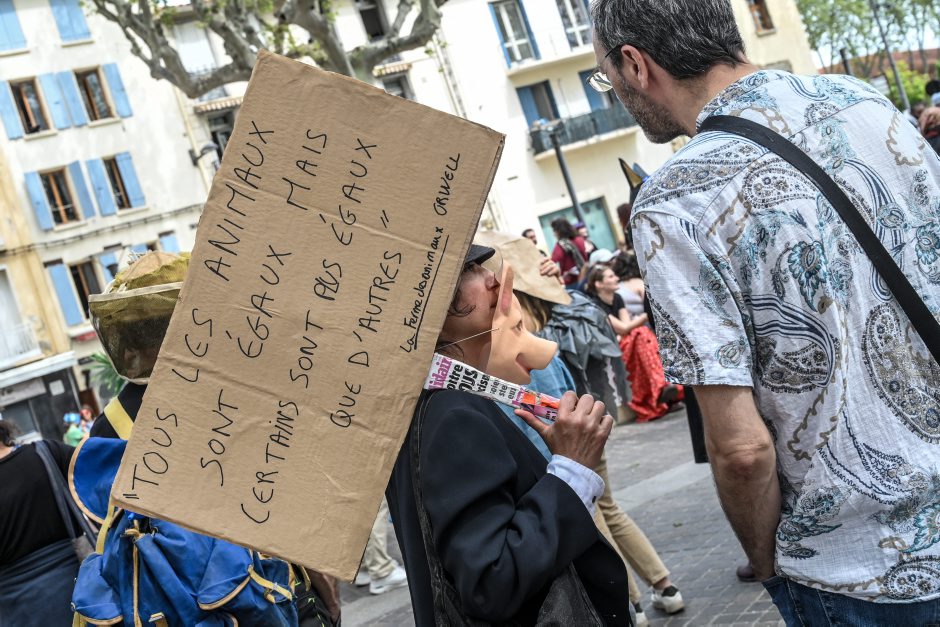 "TOUS LES ANIMAUX
SONT ÉGAUX MAIS
CERTAINS SONT PLUS ÉGAUX
QUE D'AUTRES"
La Ferme des animaux ORWELL